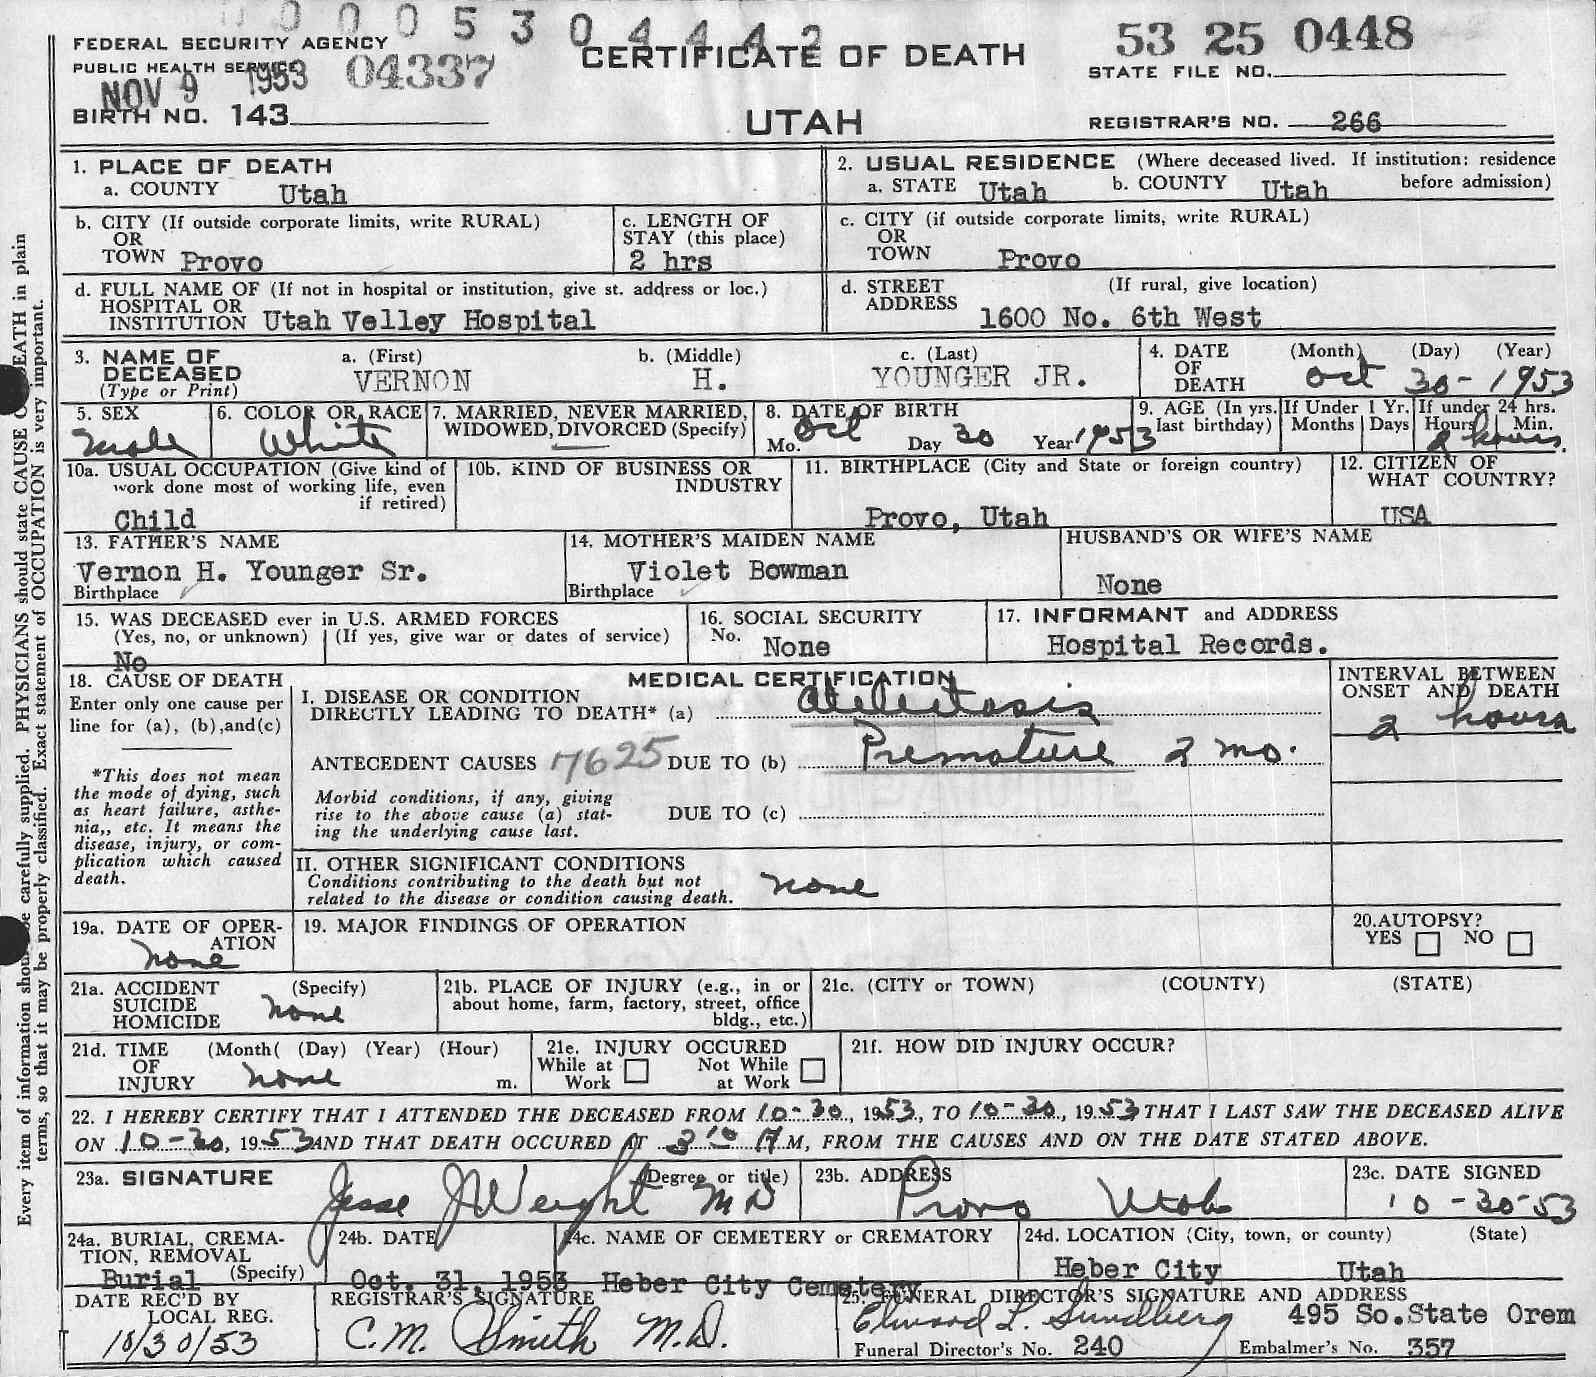 0005304442
FEDERAL SECURITY AGENCY
PUBLIC HEALTH SERVICE
NOV 9 1953 04337
BIRTH NO. 143
CERTIFICATE OF DEATH
UTAH
53 25 0448
STATE FILE NO.
REGISTRAR'S NO. 266
Every item of information should be carefully supplied. PHYSICIANS should state CAUSE OF DEATH in plain
terms, so that it may be properly classified. Exact statement of OCCUPATION is very important.
1. PLACE OF DEATH
a. COUNTY Utah
2. USUAL RESIDENCE (Where deceased lived. If institution: residence
a. STATE Utah b. COUNTY Utah before admission)
b. CITY (If outside corporate limits, write RURAL)
OR
TOWN Provo
c. LENGTH OF
STAY (this place)
2 hrs
c. CITY (if outside corporate limits, write RURAL)
OR
TOWN Provo
d. FULL NAME OF (If not in hospital or institution, give st. address or loc.)
HOSPITAL OR
INSTITUTION Utah Velley Hospital
d. STREET (If rural, give location)
ADDRESS
1600 No. 6th West
3. NAME OF
DECEASED
(Type or Print)
a. (First) b. (Middle) c. (Last)
VERNON H. YOUNGER JR.
4. DATE (Month) (Day) (Year)
OF
DEATH Oct 30-1953
5. SEX
Male
6. COLOR OR RACE
White
7. MARRIED, NEVER MARRIED,
WIDOWED, DIVORCED (Specify)
8. DATE OF BIRTH
Mo. Oct Day 30 Year 1953
9. AGE (In yrs.
last birthday)
If Under 1 Yr.
Months Days
If under 24 hrs.
Hours Min.
2 hours.
10a. USUAL OCCUPATION (Give kind of
work done most of working life, even
if retired)
Child
10b. KIND OF BUSINESS OR
INDUSTRY
11. BIRTHPLACE (City and State or foreign country)
Provo, Utah
12. CITIZEN OF
WHAT COUNTRY?
USA
13. FATHER'S NAME
Vernon H. Younger Sr.
Birthplace
14. MOTHER'S MAIDEN NAME
Violet Bowman
Birthplace
HUSBAND'S OR WIFE'S NAME
None
15. WAS DECEASED ever in U.S. ARMED FORCES
(Yes, no, or unknown) (If yes, give war or dates of service)
No
16. SOCIAL SECURITY
No. None
17. INFORMANT and ADDRESS
Hospital Records.
18. CAUSE OF DEATH
Enter only one cause per
line for (a), (b),and(c)
*This does not mean
the mode of dying, such
as heart failure, asthe-
nia,, etc. It means the
disease, injury, or com-
plication which caused
death.
MEDICAL CERTIFICATION
I. DISEASE OR CONDITION
DIRECTLY LEADING TO DEATH* (a) Atelectasis
ANTECEDENT CAUSES 7625 DUE TO (b) Premature 2 mo.
Morbid conditions, if any, giving
rise to the above cause (a) stat-
ing the underlying cause last.
DUE TO (c)
INTERVAL BETWEEN
ONSET AND DEATH
2 hours
II. OTHER SIGNIFICANT CONDITIONS
Conditions contributing to the death but not
related to the disease or condition causing death.
none
19a. DATE OF OPER-
ATION
none
19. MAJOR FINDINGS OF OPERATION
20.AUTOPSY?
YES NO
21a. ACCIDENT (Specify)
SUICIDE
HOMICIDE
none
21b. PLACE OF INJURY (e.g., in or
about home, farm, factory, street, office
bldg., etc.)
21c. (CITY or TOWN) (COUNTY) (STATE)
21d. TIME (Month( (Day) (Year) (Hour)
OF
INJURY none m.
21e. INJURY OCCURED
While at Work Not While at Work
21f. HOW DID INJURY OCCUR?
22. I HEREBY CERTIFY THAT I ATTENDED THE DECEASED FROM 10-30, 1953, TO 10-30, 1953 THAT I LAST SAW THE DECEASED ALIVE
ON 10-30, 1953 AND THAT DEATH OCCURED AT 3:10 A M, FROM THE CAUSES AND ON THE DATE STATED ABOVE.
23a. SIGNATURE (Degree or title)
Jesse J Weight MD
23b. ADDRESS
Provo Utah
23c. DATE SIGNED
10-30-53
24a. BURIAL, CREMA-
TION, REMOVAL
Burial (Specify)
24b. DATE
Oct. 31, 1953
24c. NAME OF CEMETERY or CREMATORY
Heber City Cemetery
24d. LOCATION (City, town, or county) (State)
Heber City Utah
DATE REC'D BY
LOCAL REG.
10/30/53
REGISTRAR'S SIGNATURE
C.M. Smith M.D.
25. FUNERAL DIRECTOR'S SIGNATURE AND ADDRESS
Elwood L. Sundberg 495 So.State Orem
Funeral Director's No. 240 Embalmer's No. 357